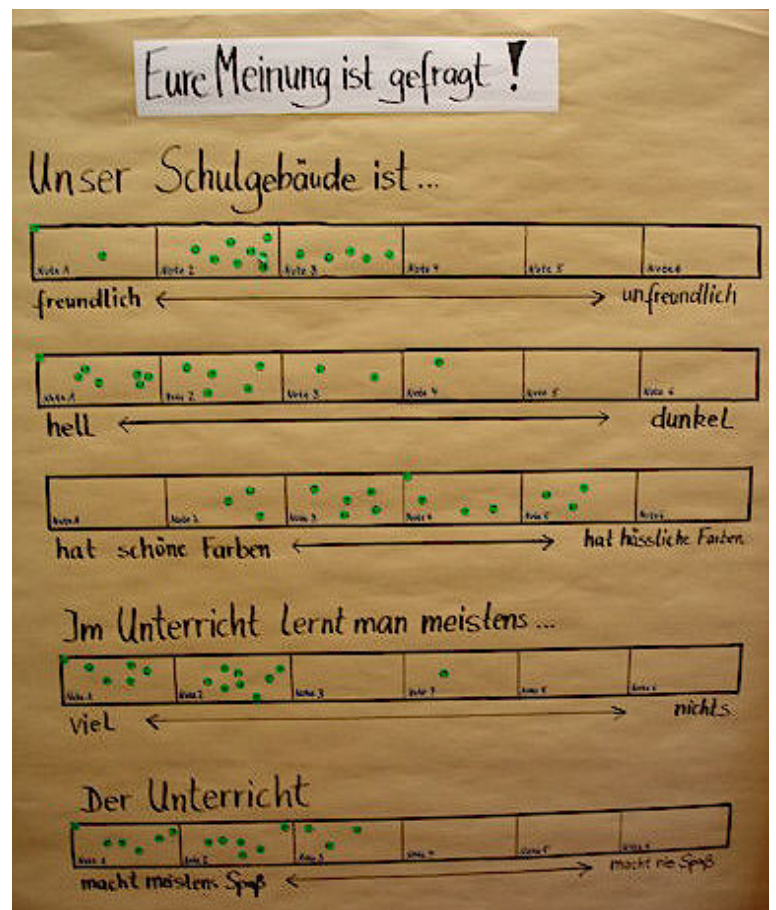 Eure Meinung ist gefragt!
Unser Schulgebäude ist...
Note 1 Note 2 Note 3 Note 4 Note 5 Note 6
freundlich unfreundlich
Note 1 Note 2 Note 3 Note 4 Note 5 Note 6
hell dunkel
Note 1 Note 2 Note 3 Note 4 Note 5 Note 6
hat schöne Farben hat hässliche Farben
Im Unterricht lernt man meistens...
Note 1 Note 2 Note 3 Note Note 5 Note 6
viel nichts
Der Unterricht
Note 1 Note 2 Note 3 Note 4 Note 5 Note
macht meistens Spaß macht nie Spaß